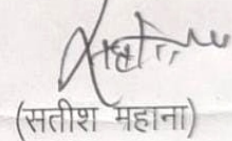 (सतीश महाना)